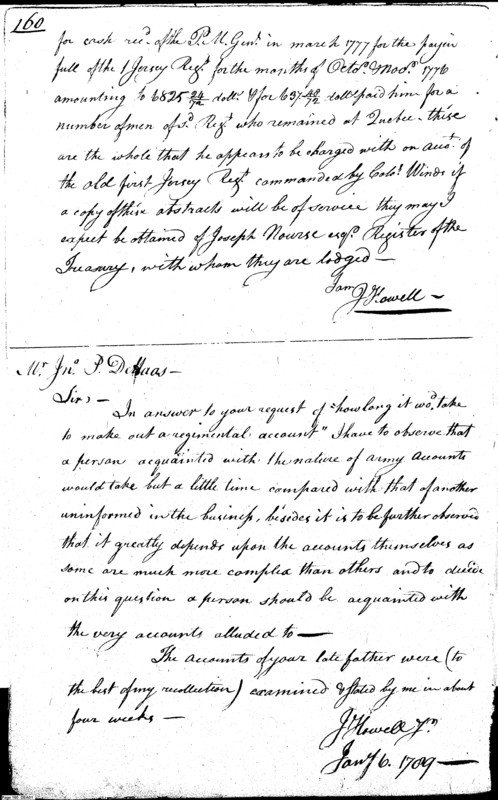 160
for cash rec.d of the P. M. Gen.l in march 1777 for the pay in
full of the 1 Jersey Reg.t for the months of Octo.r & Nov.r 1776
amounting to 6825 24/72 doll.s & for 637 48/72 doll.s paid him for a
number of men of s.d Reg.t who remained at Quebec. these
are the whole that he appears to be charged with on acc.t of
the old first Jersey Reg.t commanded by Colo.l Winds if
a copy of these abstracts will be of service they may I
expect be obtained of Joseph Nourse esq.r Register of the
Treasury, with whom they are lodged —
I am
J Howell —
M.r Jn.o P. DeHaas —
Sir, —
In answer to your request of "how long it wo.d take
to make out a regimental account" I have to observe that
a person acquainted with the nature of army accounts
would take but a little time compared with that of another
uninformed in the business, besides it is to be further observed
that it greatly depends upon the accounts themselves as
some are much more complex than others and to decide
on this question a person should be acquainted with
the very accounts alluded to —
The accounts of your late father were (to
the best of my recollection) examined & stated by me in about
four weeks —
J Howell J.r
Jan.y 6. 1789 —